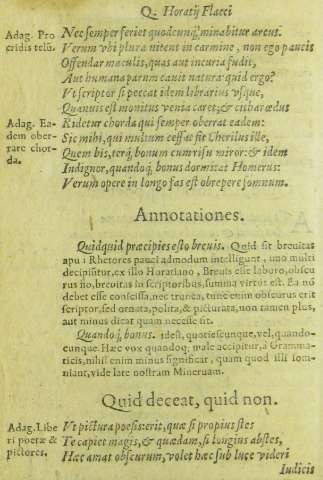 Q. Horatij Flacci
Adag. Pro
cridis telũ.
Nec semper feriet quodcunq; minabitur arcus.
Verum vbi plura nitent in carmine, non ego paucis
Offendar maculis, quas aut incuria fudit,
Aut humana parum cauit natura: quid ergo?
Vt scriptor si peccat idem librarius vsque,
Quamuis est monitus venia caret, & citharœdus
Adag. Ea-
dem ober-
rare chor-
da.
Ridetur chorda qui semper oberrat eadem:
Sic mihi, qui multum cessat fit Cherilus ille,
Quem bis, terq; bonum cum risu miror: & idem
Indignor, quandoq; bonus dormitat Homerus:
Verum opere in longo fas est obrepere somnum.
Annotationes.
Quidquid præcipies esto breuis. Quid sit breuitas
apud Rhetores pauci admodum intelligunt, vno multi
decipiũtur, ex illo Horatiano, Breuis esse laboro, obscu
rus fio, breuitas in scriptoribus, summa virtus est. Ea nõ
debet esse conscissa, nec trunca, tunc enim obscurus erit
scriptor, sed ornata, polita, & picturata, non tamen plus,
aut minus dicat quam necesse sit.
Quandoq; bonus. idest, quotiescunque, vel, quando-
cunque. Hæc vox quandoq; male accipitur, à Gramma-
ticis, nihil enim minus significat, quam quod illi som-
niant, vide late nostram Mineruam.
Quid deceat, quid non.
Adag. Libe
ri poetæ &
pictores.
Vt pictura poesis: erit, quæ si propius stes
Te capiet magis, & quædam, si longius abstes,
Hæc amat obscurum, volet hæc sub luce videri
Iudicis